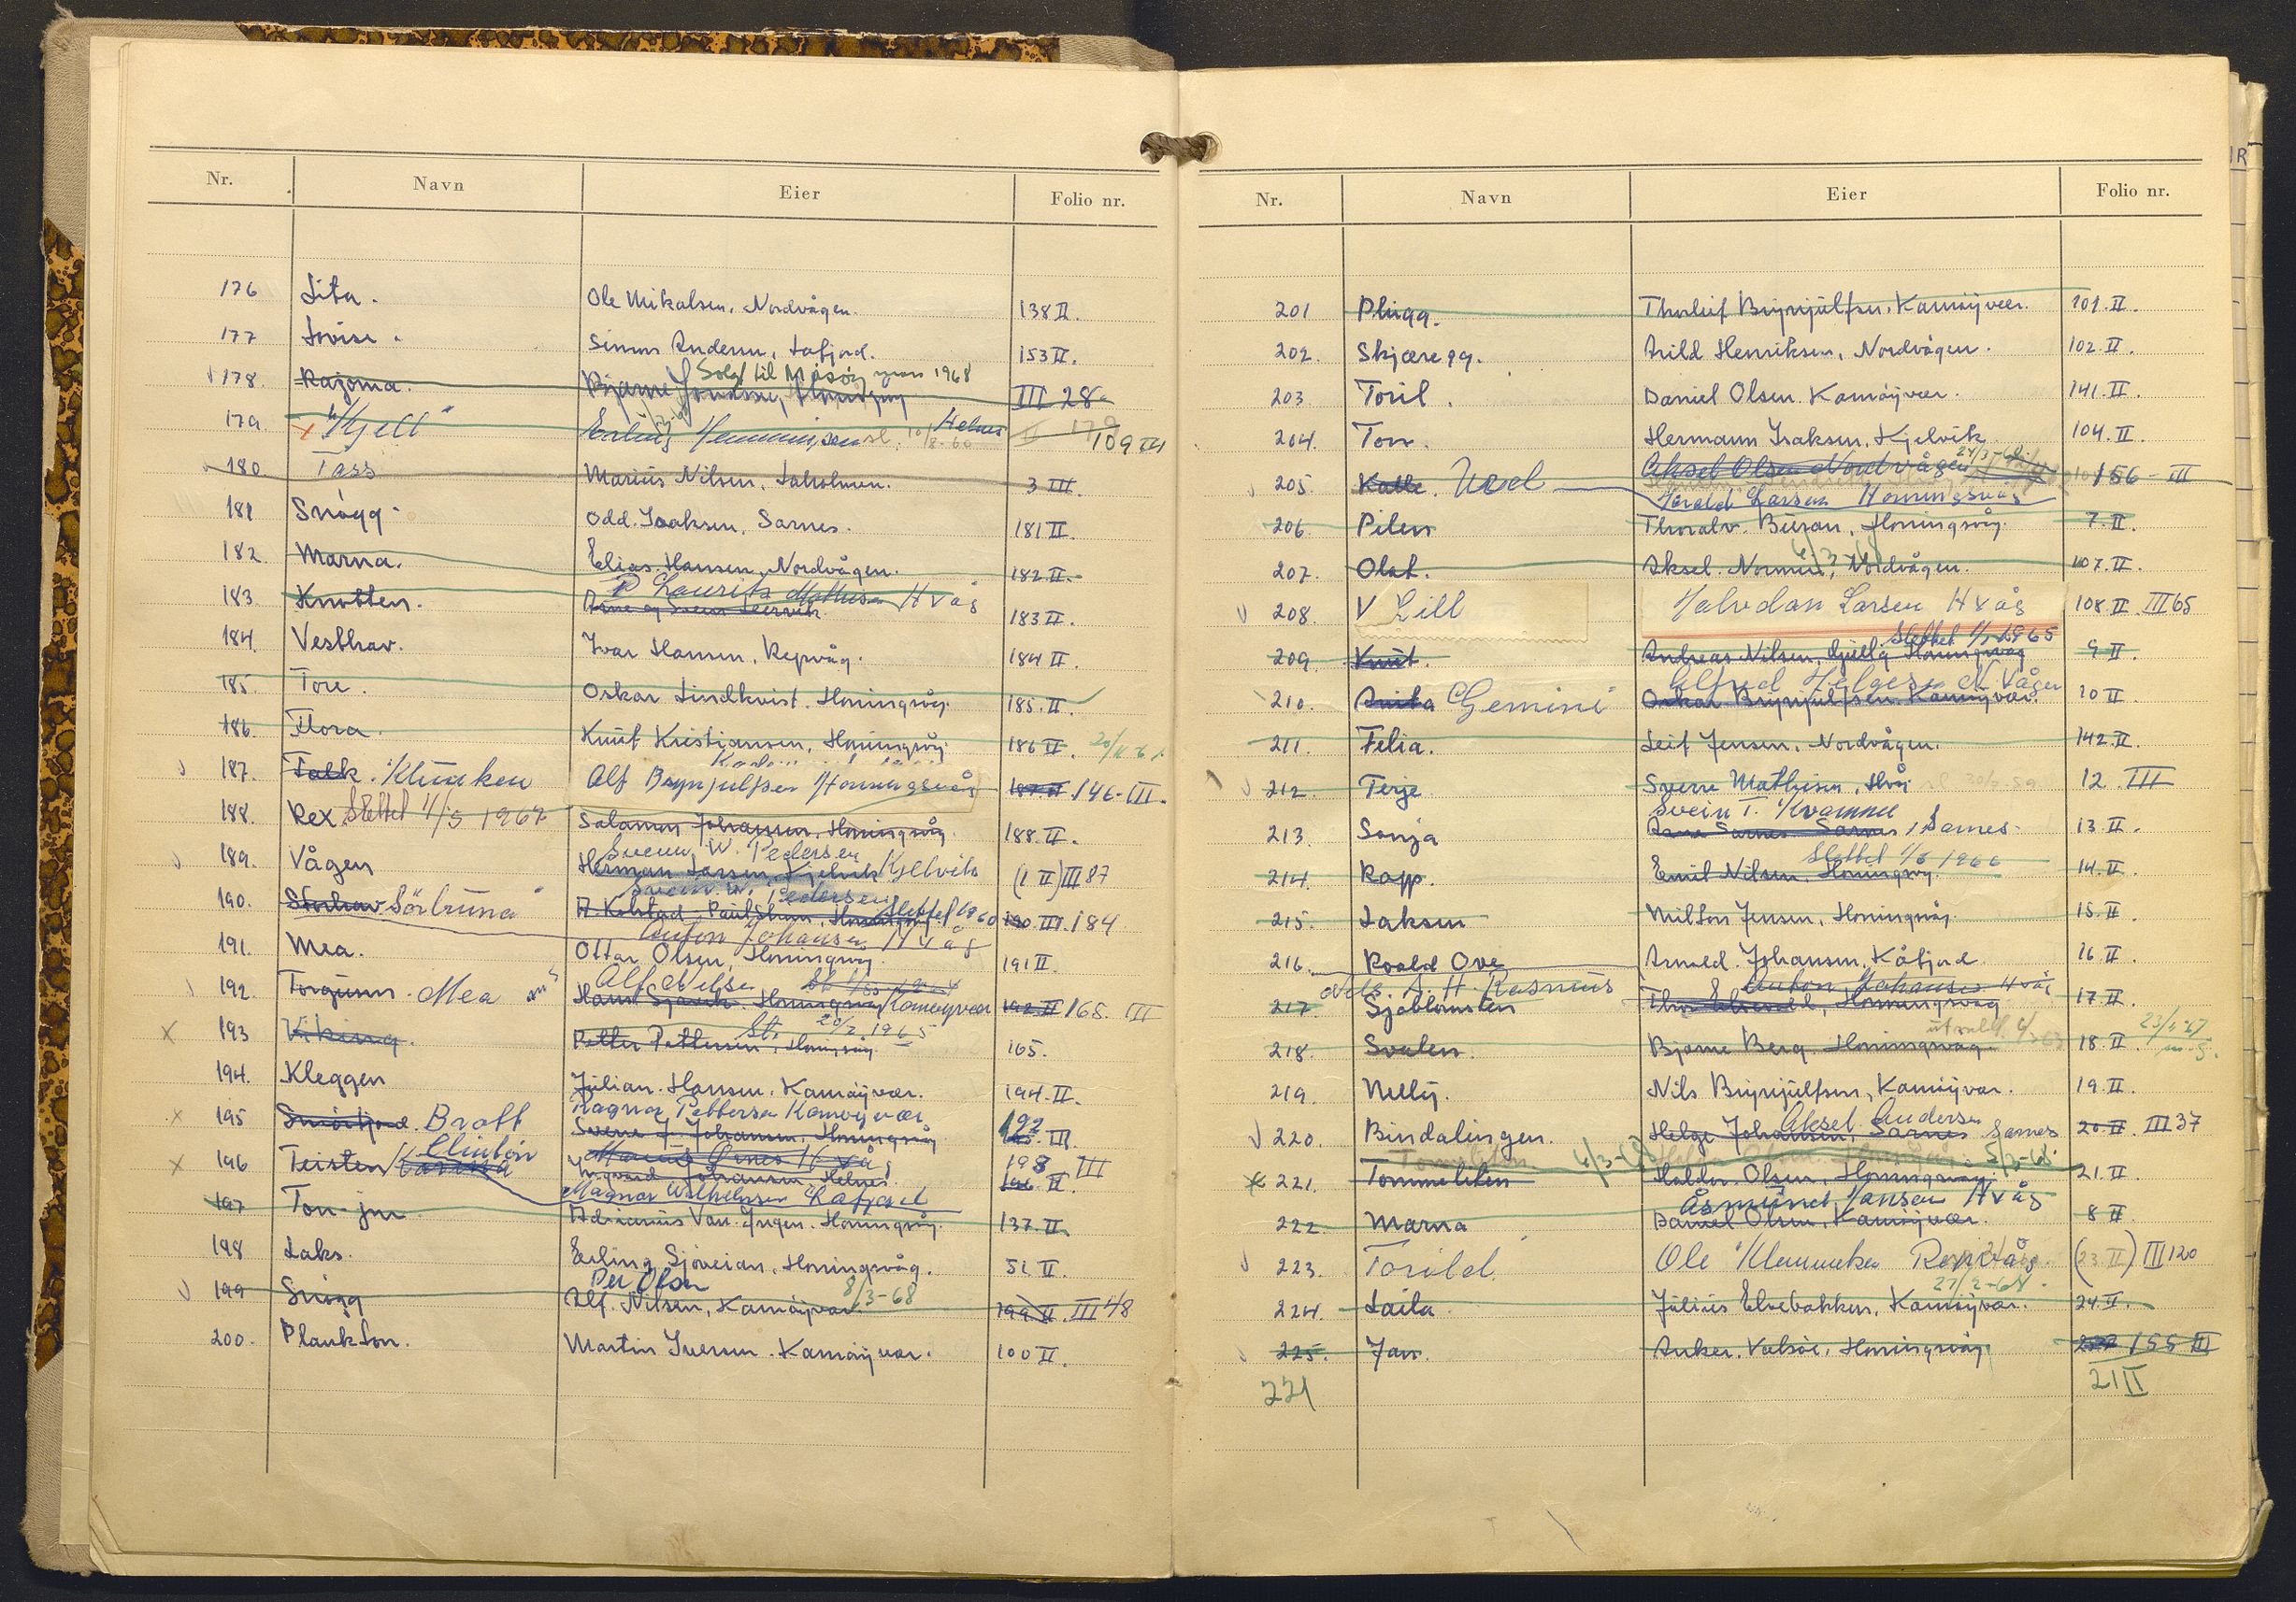 Nr. Navn Eier Folio nr.
176 Lita. Ole Mikalsen, Nordvågen. 138 II.
177 Lovise. Simon Andersen, Kafjord. 153 II.
Solgt til Måsøy mars 1968
178. Rajoma. Bjarne III 28
179. "Kjell" Erling Henningsen sl. 10/8-60 Helnes 109 III
180. Tass Marius Nilsen, Laholmen. 3 III.
181 Snögg. Odd. Isaksen, Sarnes. 181 II.
182. Marna. Elias. Hansen, Nordvågen. 182. II.
P Laurits Mathisen Hvåg
183. Knotten. Arne og Svein Leervik 183 II.
184. Vesthav. Ivar Hansen, Repvåg. 184 II.
185. Tore. Oskar Lindkvist. Honningsvåg. 185. II.
186. Flora. Knut Kristjansen, Honningsvåg. 186 II.
187. Falk. Klunken Alf Brynjulfsen Honningsvåg 187 II 146-III.
188. Rex. Slettet 1/5 1967 Salamon Johansen, Honningsvåg. 188. II.
Svein W. Pedersen
189. Vågen Herman Larsen, Kjelvik Kjelvik (1 II) III 87
Svein. W. Pedersen
190. Storhav Sörbruna A. Kolstad, Honningsvåg slettet 190 III. 184
Anton Johansen Hvåg
191. Mea. Ottar Olsen, Honningsvåg. 191 II.
Alf Nilsen
192. Torgunn. Mea Hans Honningsvåg Kamøyvær 192 II 165. III
St. 20/2 1965
193 Viking. Petter Pettersen, Honningsvåg. 165.
194. Kleggen Julian. Hansen, Kamøyvær. 194. II.
Ragnar Pettersen Kamøyvær
195 Snöit fjord. Bratt Sverre J. Johansen, Honningsvåg 192 III.
Clinton Hvåg 198 III
196 Teisten Ingvard Johansen Helnes. 196 II.
Magnar Wilhelmsen Kafjord
197 Ton-jon Adrianus Van. Jugen. Honningsvåg. 137. II.
198 Laks. Erling Sjöveian, Honningsvåg. 51 II.
Per Olsen 8/3-68
199 Snögg Alf. Nilsen, Kamøyvær 199 II. III 48
200. Plankton. Martin Iversen. Kamøyvær. 100 II.
Nr. Navn Eier Folio nr.
201 Plugg. Thorleif Brynjulfsen, Kamøyvær. 101. II.
202. Skjæregg. Arild Henriksen, Nordvågen. 102. II.
203 Toril. Daniel Olsen. Kamøyvær. 141. II.
204. Tor. Hermann Isaksen, Kjelvik. 104. II.
Aksel Olsen Nordvågen
205. Kalle. Ued 156-III
Harald Larsen Honningsvåg
206. Pilen Thoralv. Buran, Honningsvåg. 7. II.
207. Olaf. Aksel. Normann, Nordvågen. 107. II.
208. V Lill Halvdan Larsen Hvåg 108. II. III 65
Slettet 1965
209. Knut. Andreas Nilsen, Honningsvåg 9 II.
Alfred Helgesen N. Vågen
210. Anita Gemini Oskar Brynjulfsen. Kamøyvær. 10 II.
211. Felia. Leif Jensen, Nordvågen. 142. II.
212. Terje Sverre Mathisen, Hvåg 12. III
Svein T. Kvamme
213. Sonja Arne Sarnes Sarnes, Sarnes. 13. II.
Slettet 1/6 1966
214. Rapp. Emil Nilsen, Honningsvåg. 14. II.
215. Laksen Milton Jensen, Honningsvåg 15. II.
216. Roald Ove Arnold. Johansen, Kåfjord. 16 II.
Nils. A. H. Rasmus Anton Johansen Hvåg
217. Sjöblomsten Honningsvåg 17. II.
218. Svalen. Bjarne Berg. Honningsvåg. 18. II.
219. Nelly. Nils Brynjulfsen, Kamøyvær. 19. II.
Aksel Andersen
220. Bindalingen. Helge Johansen, Sarnes Sarnes 20. II. III 37
Tommeliten 4/3-68
221. Tommeliten Haldor Olsen, Honningsvåg 21. II
Åsmund Hansen Hvåg
222. Marna Daniel Olsen, Kamøyvær. 8 II.
223. Torild. Ole Klemmeken Repvåg. (23. II) III 120
27/2-68.
224. Laila. Julius Elvebakken, Kamøyvær. 24 II.
225. Jan. Anker. Valsöe, Honningsvåg. 155 III
221 21 II